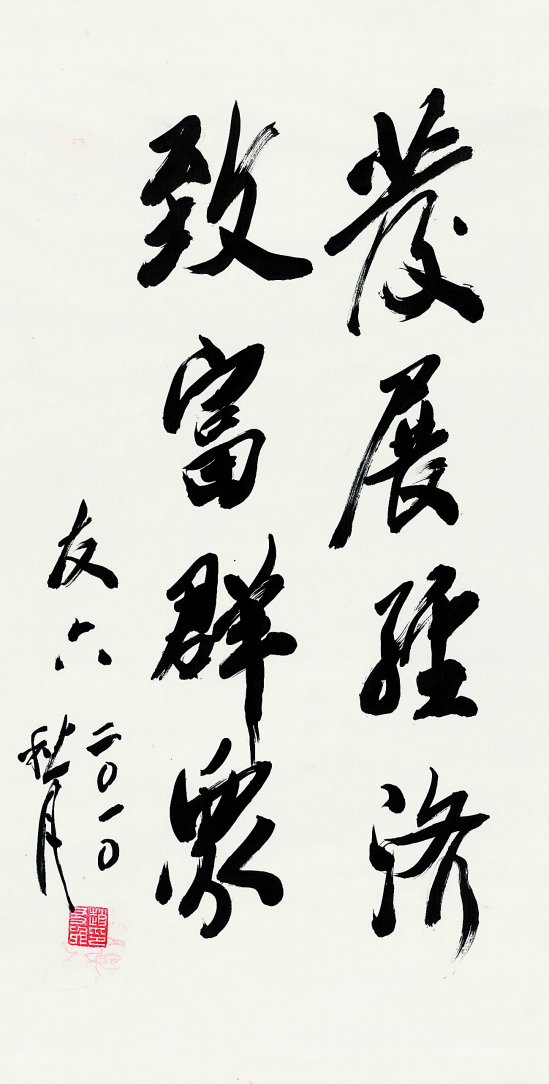 發展經濟
致富群眾
友六
二〇一〇
秋月